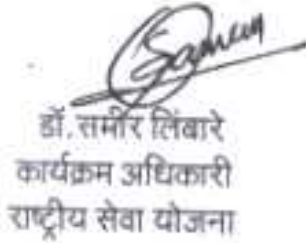 डॉ. समीर लिंबारे
कार्यक्रम अधिकारी
राष्ट्रीय सेवा योजना